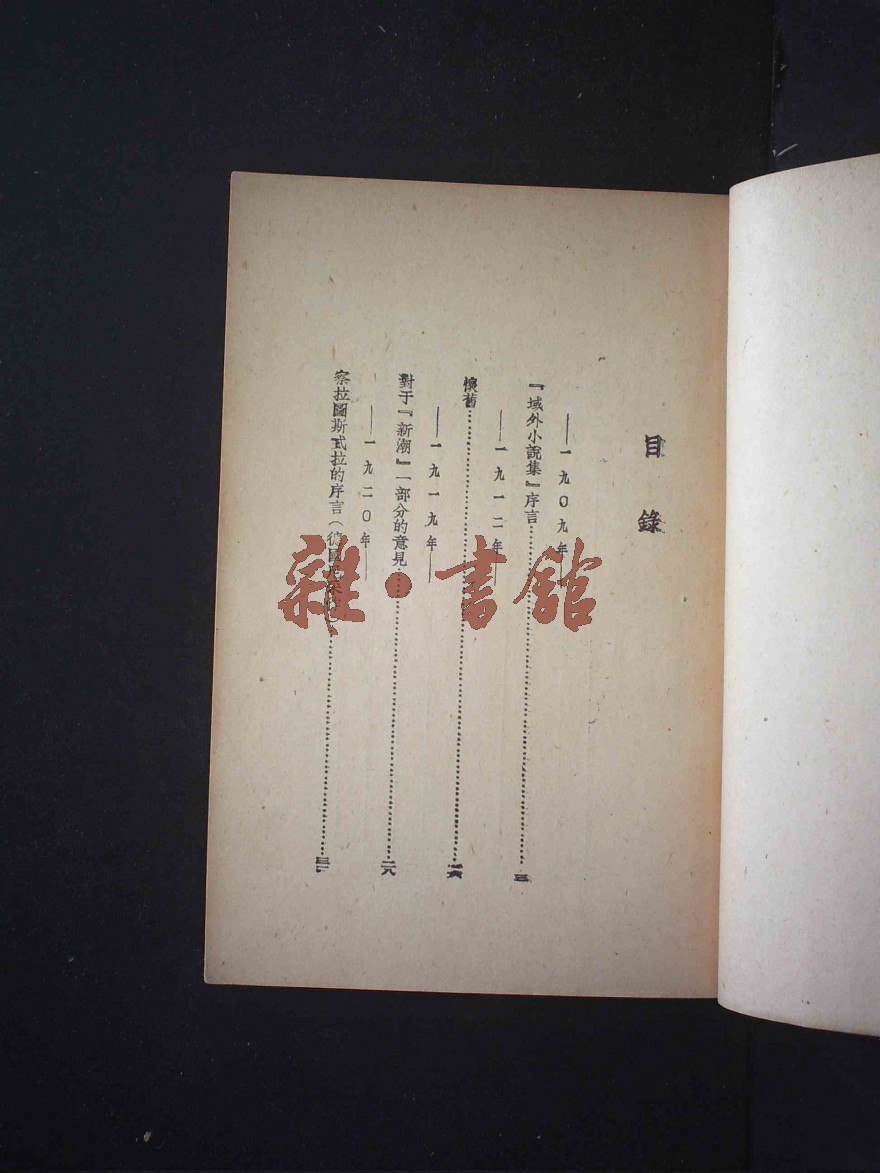 目錄
——一九〇九年——
『域外小說集』序言……三
——一九一二年——
懷舊……一六
——一九一九年——
對于『新潮』一部分的意見……二八
——一九二〇年——
察拉圖斯忒拉的序言（德國
雜·書館